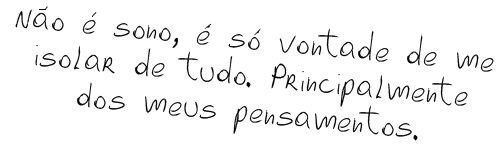 Não é sono, é só vontade de me
isolar de tudo. Principalmente
dos meus pensamentos.